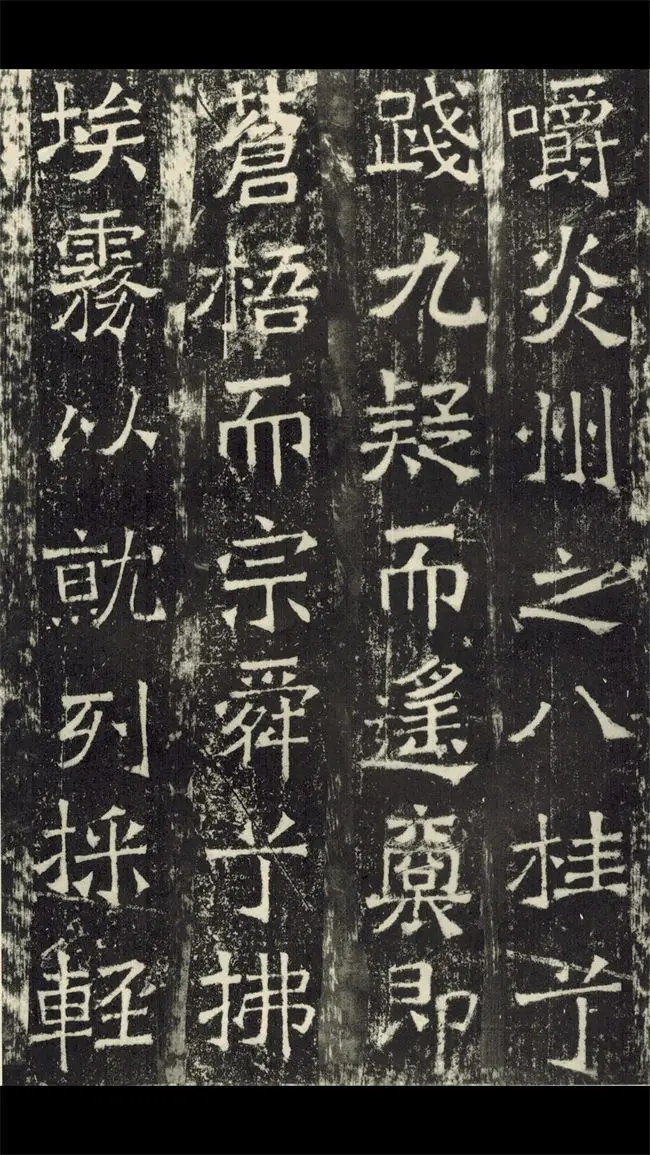 嚼炎州之八桂兮
踐九疑而遙冀即
蒼梧而宗舜兮拂
埃霧以就列採輕